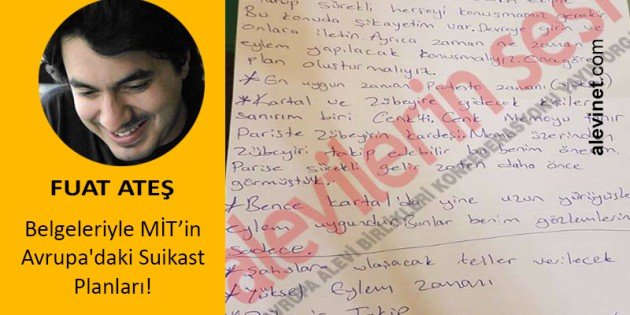 FUAT ATEŞ
Belgeleriyle MİT'in
Avrupa'daki Suikast
Planları!
sürekli herşeyi konuşmamız gerekir
Bu konuda şikayetim var. Devreye girin ve
onlara iletin. Ayrıca zaman ne zaman
eylem yapılacak konuşmalıyız. Ona göre
plan oluşturmalıyız.
* En uygun zaman Protesto zamanı
* Kartal ve Zübeyire gidecek kişiler
sanırım biri Cenkti. Cenk Memoyu tanır
Pariste Zübeyirin kardeşi Memo üzerinden
Zübeyiri takip edebilir bu benim önerim.
Parise sürekli gelir zaten daha önce
görmüştük.
* Bence Kartal'da yine uzun yürüyüşle
Eylem uygundur. Bunlar benim gözlemlerim
sadece.
* Şahıslara ulaşacak teller verilecek.
* Yüksel Eylem zamanı
Takip
alevilerin sesi
AVRUPA ALEVİ BİRLİKLERİ KONFEDERASYONU YAYIN ORGANI
alevinet.com